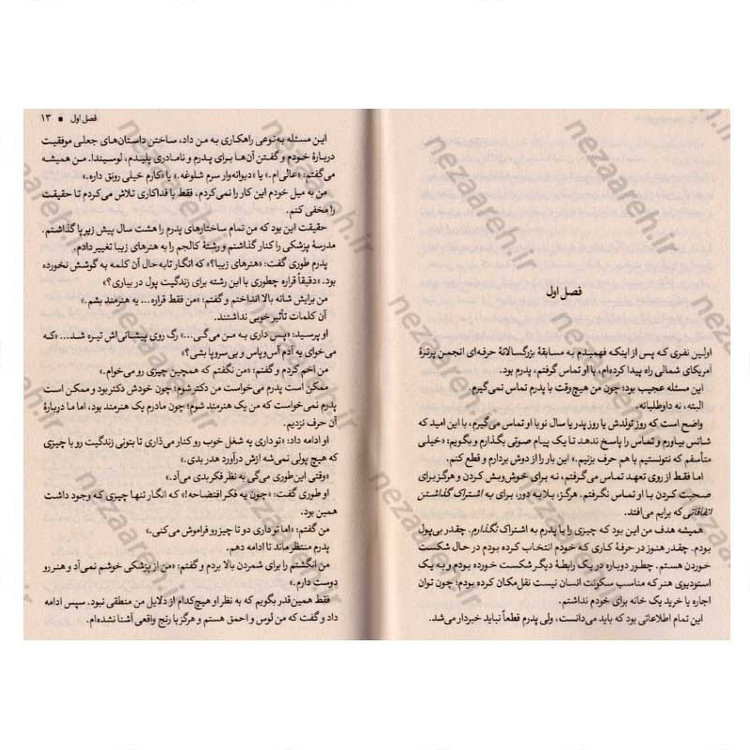 فصل اول
اولین نفری که پس از اینکه فهمیدم به مسابقهٔ بزرگسالانهٔ حرفه‌ای انجمن پرترهٔ
آمریکای شمالی راه پیدا کرده‌ام، با او تماس گرفتم، پدرم بود.
این مسئله عجیب بود؛ چون من هیچ‌وقت با پدرم تماس نمی‌گیرم.
البته، نه داوطلبانه.
واضح است که روز تولدش یا روز پدر یا سال نو با او تماس می‌گیرم، با این امید که
شانس بیاورم و تماس را پاسخ ندهد تا یک پیام صوتی بگذارم و بگویم: «خیلی
متأسفم که نتونستیم با هم حرف بزنیم.» این بار را از دوش بردارم و قطع کنم.
اما فقط از روی تعهد تماس می‌گرفتم، نه برای خوش‌وبش کردن و هرگز برای
صحبت کردن با او تماس نگرفتم. هرگز، بلا به دور، برای به اشتراک گذاشتن
اتفاقاتی که برایم می‌افتد.
همیشه هدف من این بود که چیزی را با پدرم به اشتراک نگذارم. چقدر بی‌پول
بودم. چقدر هنوز در حرفهٔ کاری که خودم انتخاب کرده بودم در حال شکست
خوردن هستم. چطور دوباره در یک رابطهٔ دیگر شکست خورده بودم و به یک
استودیوی هنر که مناسب سکونت انسان نیست نقل‌مکان کرده بودم؛ چون توان
اجاره یا خرید یک خانه برای خودم نداشتم.
این تمام اطلاعاتی بود که باید می‌دانست، ولی پدرم قطعاً نباید خبردار می‌شد.
فصل اول ■ ۱۳
این مسئله به‌نوعی راهکاری به من داد، ساختن داستان‌های جعلی موفقیت
دربارهٔ خودم و گفتن آن‌ها برای پدرم و نامادری پلیدم، لوسیندا. من همیشه
می‌گفتم: «عالی‌ام.» یا «دیوانه‌وار سرم شلوغه.» یا «کارم خیلی رونق داره.»
من به میل خودم این کار را نمی‌کردم، فقط با فداکاری تلاش می‌کردم تا حقیقت
را مخفی کنم.
حقیقت این بود که من تمام ساختارهای پدرم را هشت سال پیش زیر پا گذاشتم.
مدرسهٔ پزشکی را کنار گذاشتم و رشتهٔ کالجم را به هنرهای زیبا تغییر دادم.
پدرم طوری گفت: «هنرهای زیبا؟» که انگار تابه‌حال آن کلمه به گوشش نخورده
بود. «دقیقاً قراره چطوری با این رشته برای زندگیت پول در بیاری؟»
من برایش شانه بالا انداختم و گفتم: «من فقط قراره... یه هنرمند بشم.»
آن کلمات تأثیر خوبی نداشتند.
او پرسید: «پس داری به من می‌گی...» رگ روی پیشانی‌اش تیره شد... «که
می‌خوای یه آدم آس‌وپاس و بی‌سروپا بشی؟»
من اخم کردم و گفتم: «من نگفتم که همچین چیزی رو می‌خوام.»
ممکن است پدرم می‌خواست من دکتر شوم؛ چون خودش دکتر بود و ممکن است
پدرم نمی‌خواست که من یک هنرمند شوم؛ چون مادرم یک هنرمند بود، اما ما دربارهٔ
آن حرف نزدیم.
او ادامه داد: «تو داری یه شغل خوب رو کنار می‌ذاری تا بتونی زندگیت رو با چیزی
که هیچ پولی نمی‌شه ازش درآورد هدر بدی.»
«وقتی این‌طوری می‌گی به نظر فکر بدی می‌آد.»
او طوری گفت: «چون یه فکر افتضاحه!» که انگار تنها چیزی که وجود داشت
همین بود.
من گفتم: «اما تو داری دو تا چیز رو فراموش می‌کنی.»
پدرم منتظر ماند تا ادامه دهم.
من انگشتم را برای شمردن بالا بردم و گفتم: «من از پزشکی خوشم نمی‌آد و هنر رو
دوست دارم.»
فقط همین‌قدر بگویم که به نظر او هیچ‌کدام از دلایل من منطقی نبود. سپس ادامه
داد و گفت که من لوس و احمق هستم و هرگز با رنج واقعی آشنا نشده‌ام.
nezaareh.ir